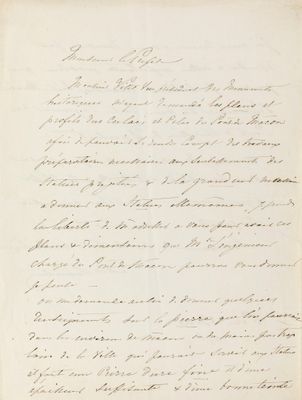 Monsieur le Préfet
Monsieur le Vice président des Monuments
historiques m'ayant demandé les plans et
profils des Culées et Piles du Pont de Macon
afin de pouvoir se rendre compte des travaux
préparatoires nécessaires aux Soubassements des
Statues projetées & de la grandeur
a donner aux Statues je prends
la liberté de m'adresser a vous pour avoir ces
Plans & dimensions que Mr l'ingenieur
chargé du Pont de Macon pourra vous donner
je pense —
on me demande aussi de donner quelques
renseignements sur la pierre que l'on pourrait
dans les environs de Macon ou du moins pas trop
loin de la Ville qui pourrait Servir aux Statues
il faut une Pierre dure fine et d'une
épaisseur Suffisante & d'une bonne teinte